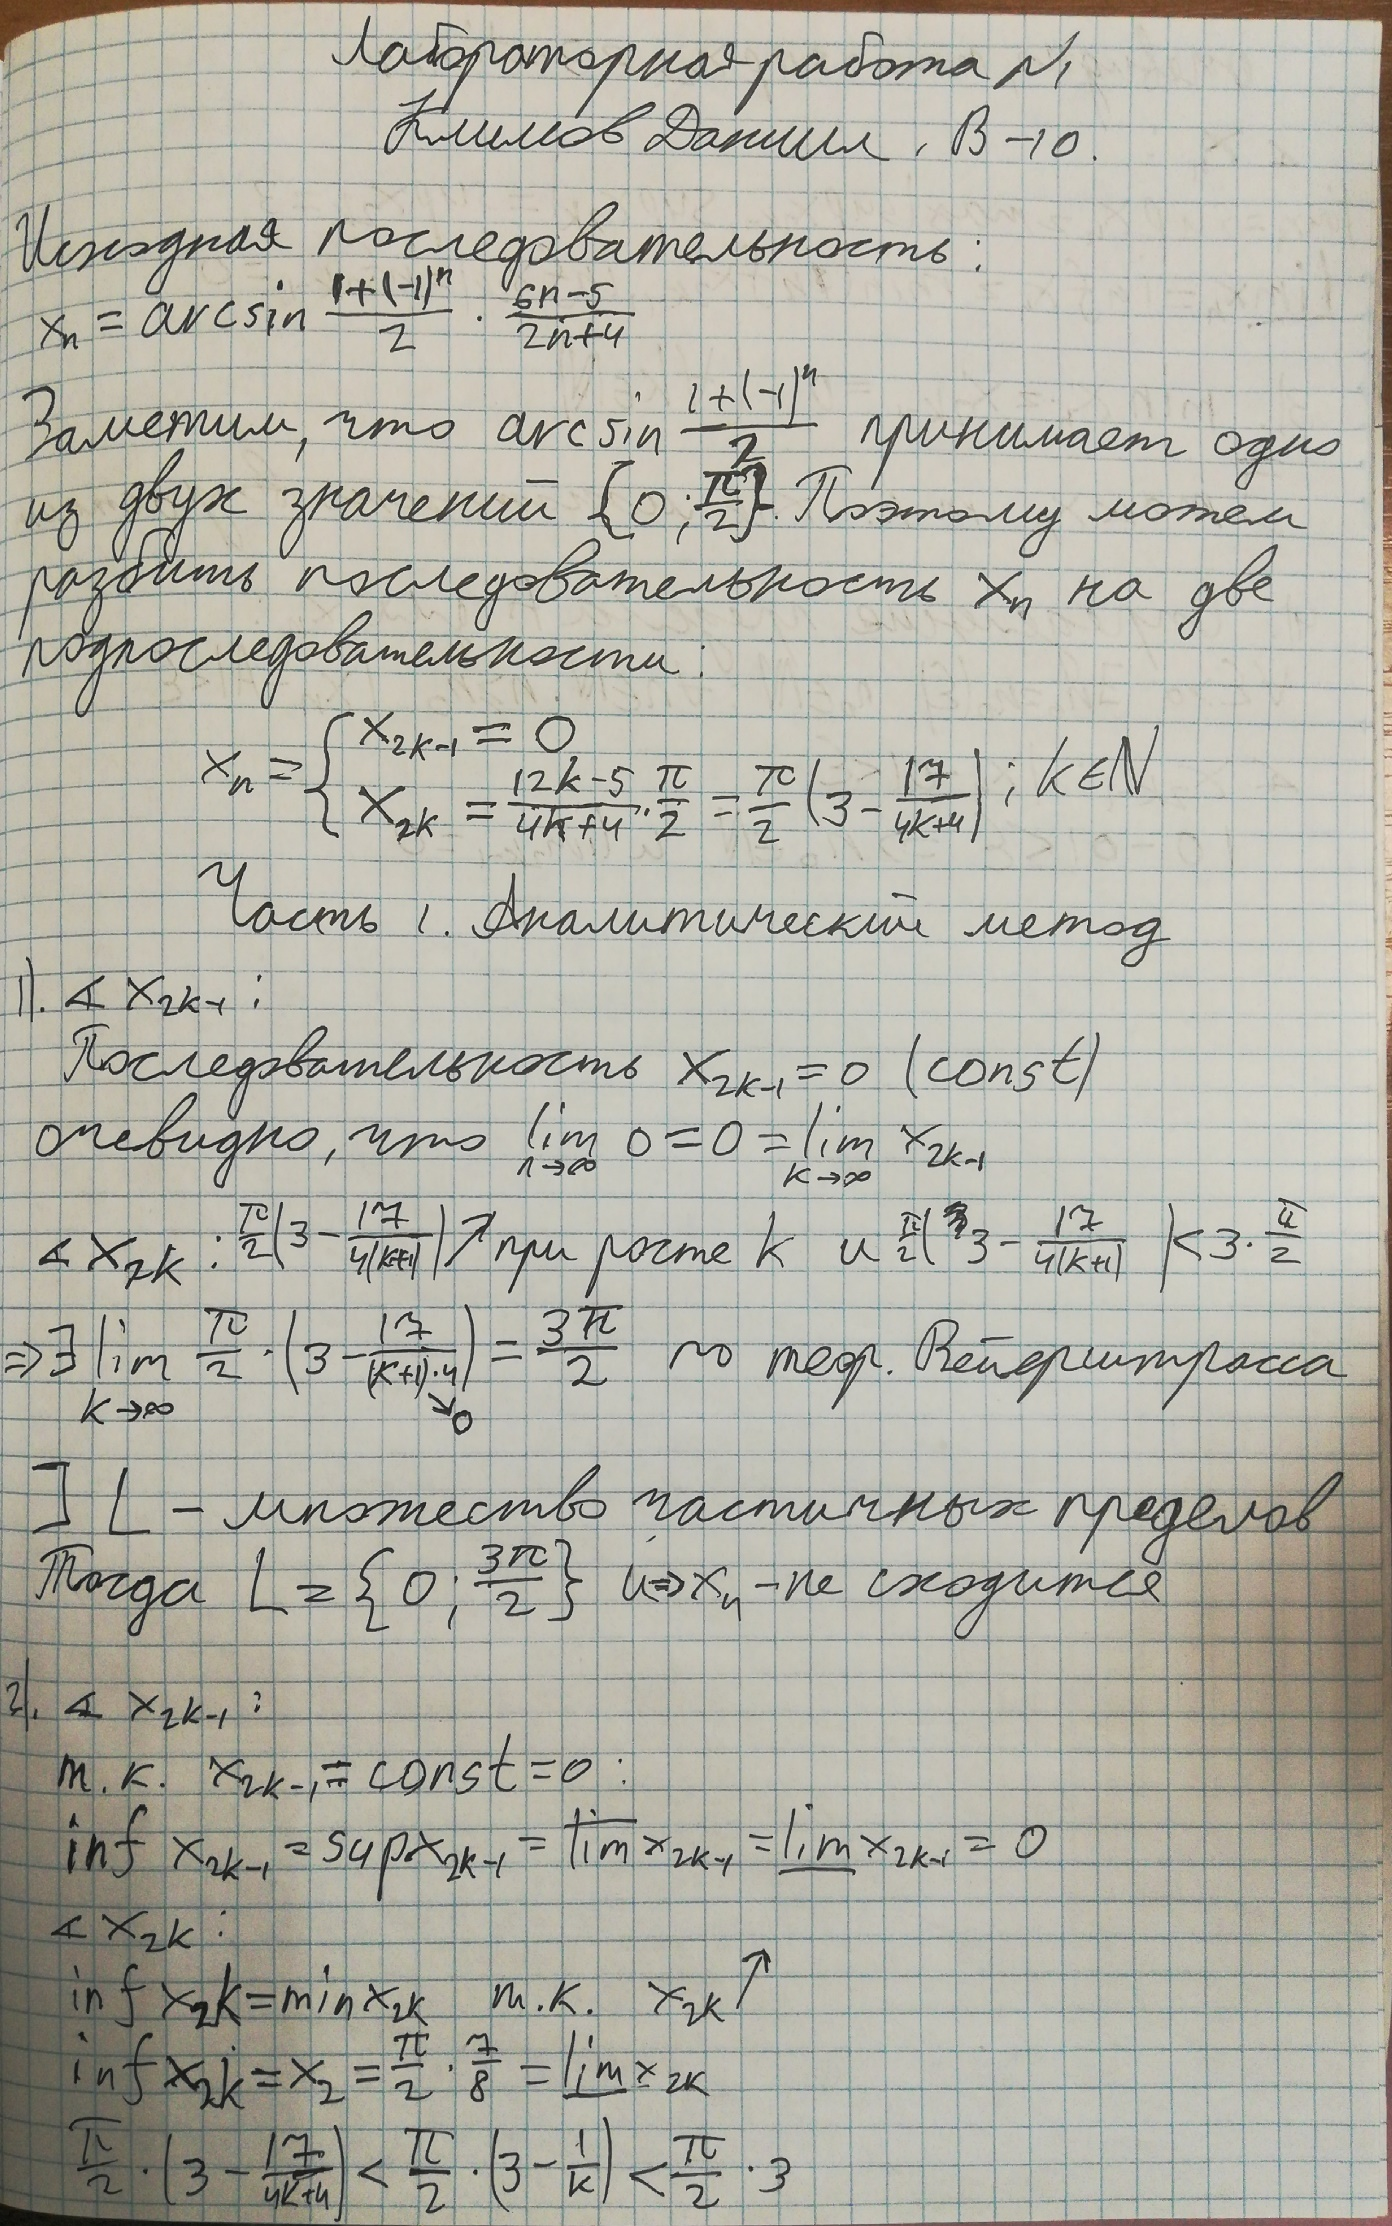 Лабораторная работа №1
Климов Даниил, В-10.
Исходная последовательность:
xₙ = arcsin (1+(-1)ⁿ)/2 · (6n-5)/(2n+4)
Заметим, что arcsin (1+(-1)ⁿ)/2 принимает одно
из двух значений {0; π/2}. Поэтому можем
разбить последовательность xₙ на две
подпоследовательности:
xₙ = { x₂ₖ₋₁ = 0
x₂ₖ = (12k-5)/(4k+4) · π/2 = π/2 (3 - 17/(4k+4)) ; k∈ℕ
Часть 1. Аналитический метод
1). ∢ x₂ₖ₋₁ :
Последовательность x₂ₖ₋₁ = 0 (const)
очевидно, что lim n→∞ 0 = 0 = lim k→∞ x₂ₖ₋₁
∢ x₂ₖ : π/2 (3 - 17/(4(k+1))) ↗ при росте k и π/2 (3 - 17/(4(k+1))) < 3 · π/2
⇒ ∃ lim k→∞ π/2 · (3 - 17/((k+1)·4)) = 3π/2 по теор. Вейерштрасса
↘0
] L – множество частичных пределов
Тогда L = {0; 3π/2} и ⇒ xₙ – не сходится
2). ∢ x₂ₖ₋₁ :
т.к. x₂ₖ₋₁ = const = 0 :
inf x₂ₖ₋₁ = sup x₂ₖ₋₁ = l̅i̅m̅ x₂ₖ₋₁ = l̲i̲m̲ x₂ₖ₋₁ = 0
∢ x₂ₖ :
inf x₂ₖ = min x₂ₖ т.к. x₂ₖ ↗
inf x₂ₖ = x₂ = π/2 · 7/8 = l̲i̲m̲ x₂ₖ
π/2 · (3 - 17/(4k+4)) < π/2 · (3 - 1/k) < π/2 · 3